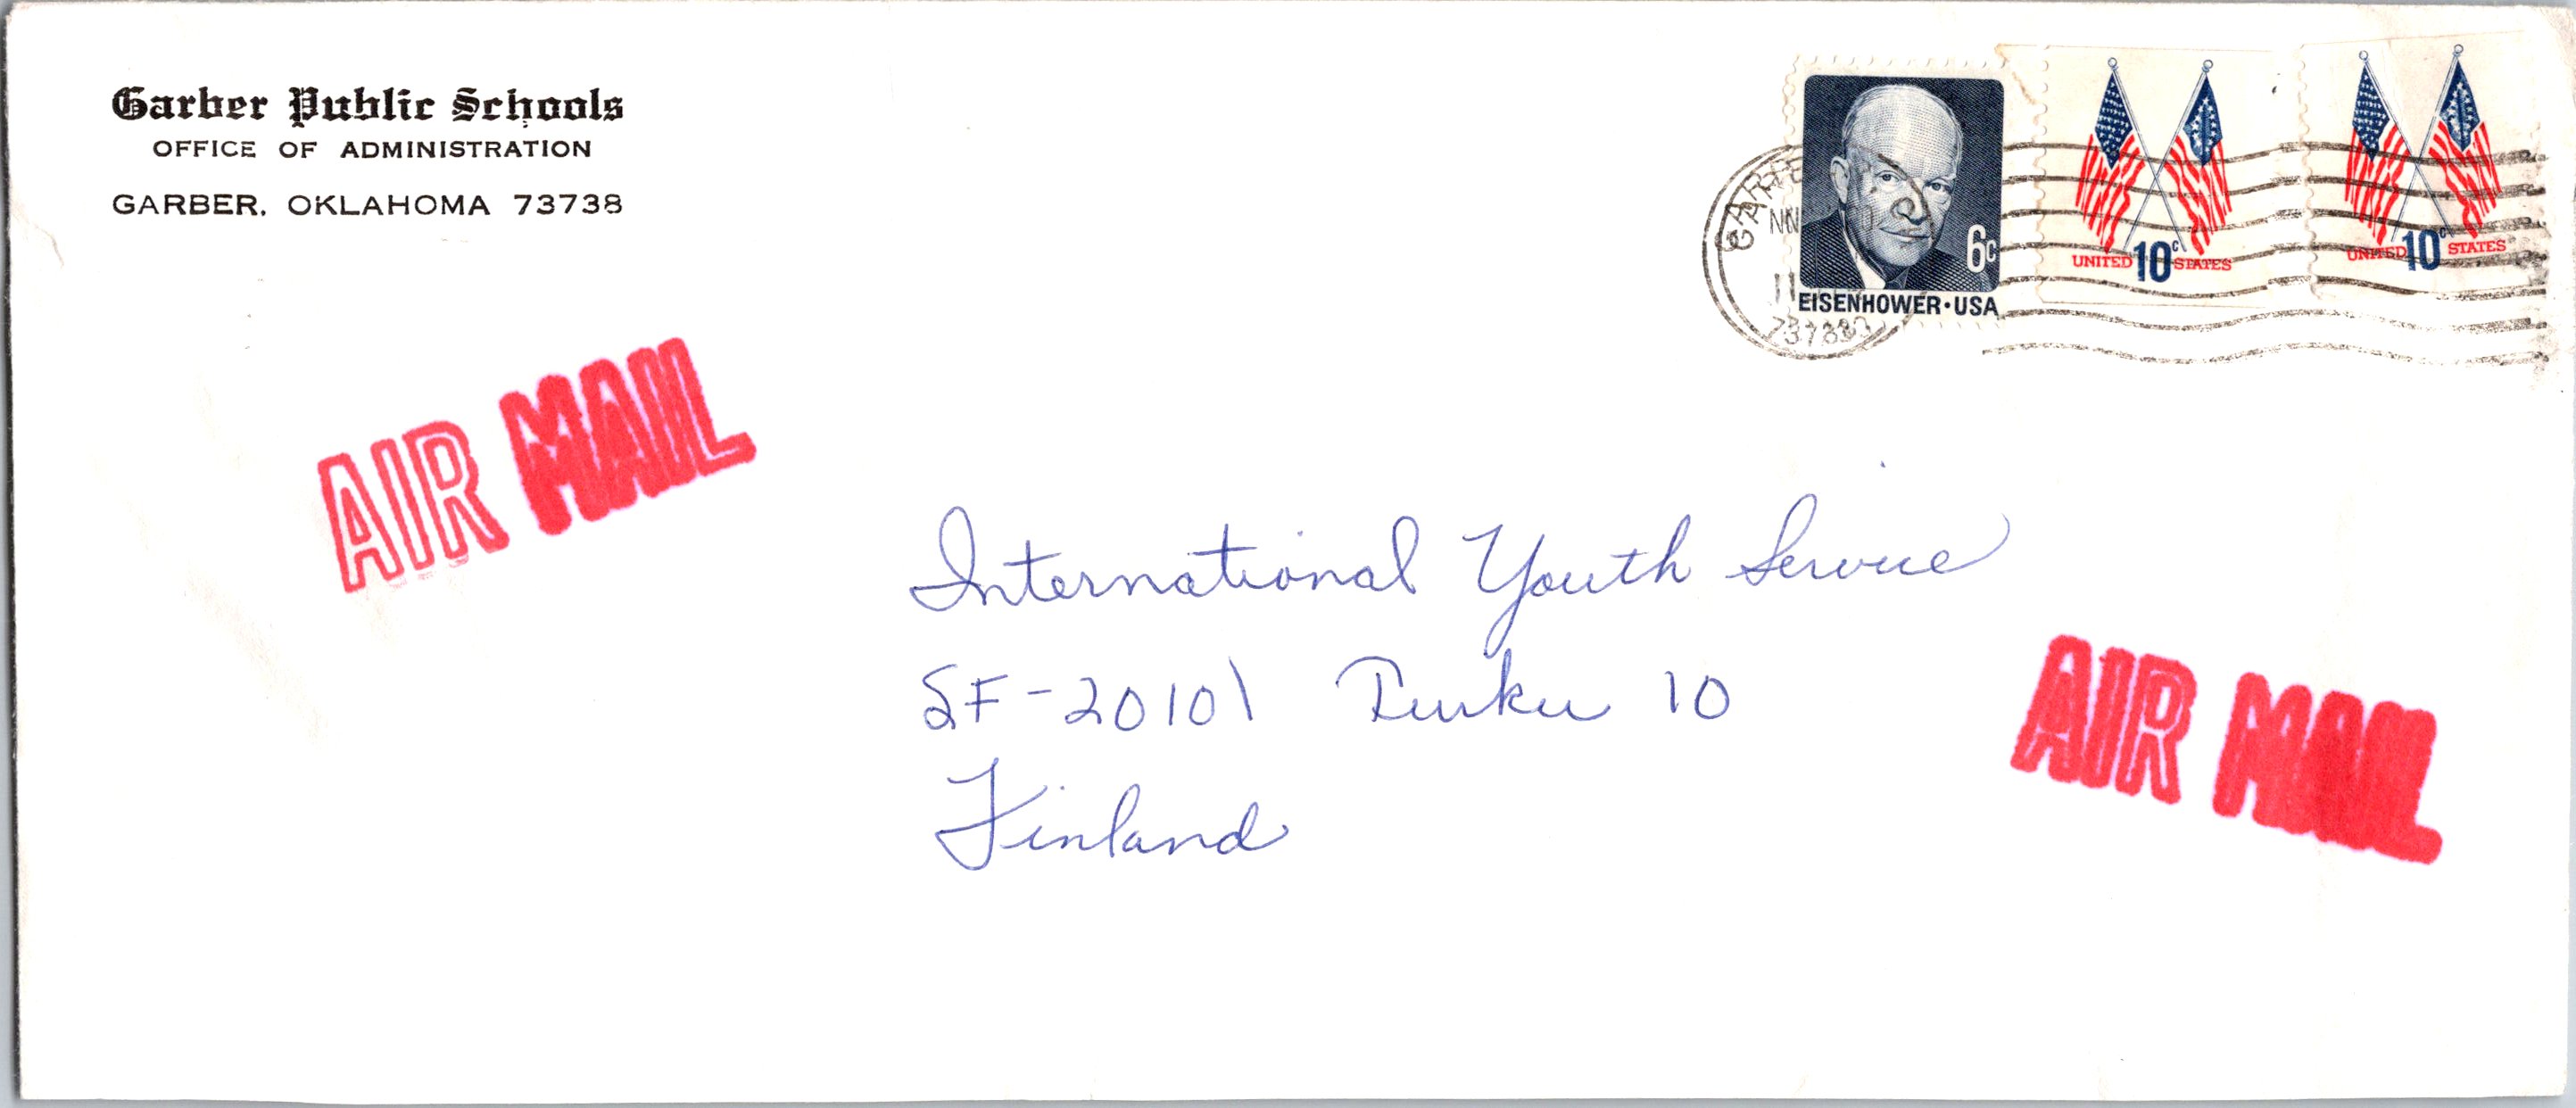 Garber Public Schools
OFFICE OF ADMINISTRATION
GARBER, OKLAHOMA 73738
6c
EISENHOWER·USA
UNITED 10c STATES
UNITED 10c STATES
AIR MAIL
International Youth Service
SF-20101 Turku 10
Finland
AIR MAIL